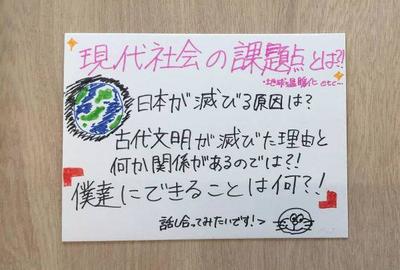 現代社会の課題点とは?!
・地球温暖化 etc…
日本が滅びる原因は?
古代文明が滅びた理由と
何か関係があるのでは?!
僕達にできることは何?!
話し合ってみたいです!>